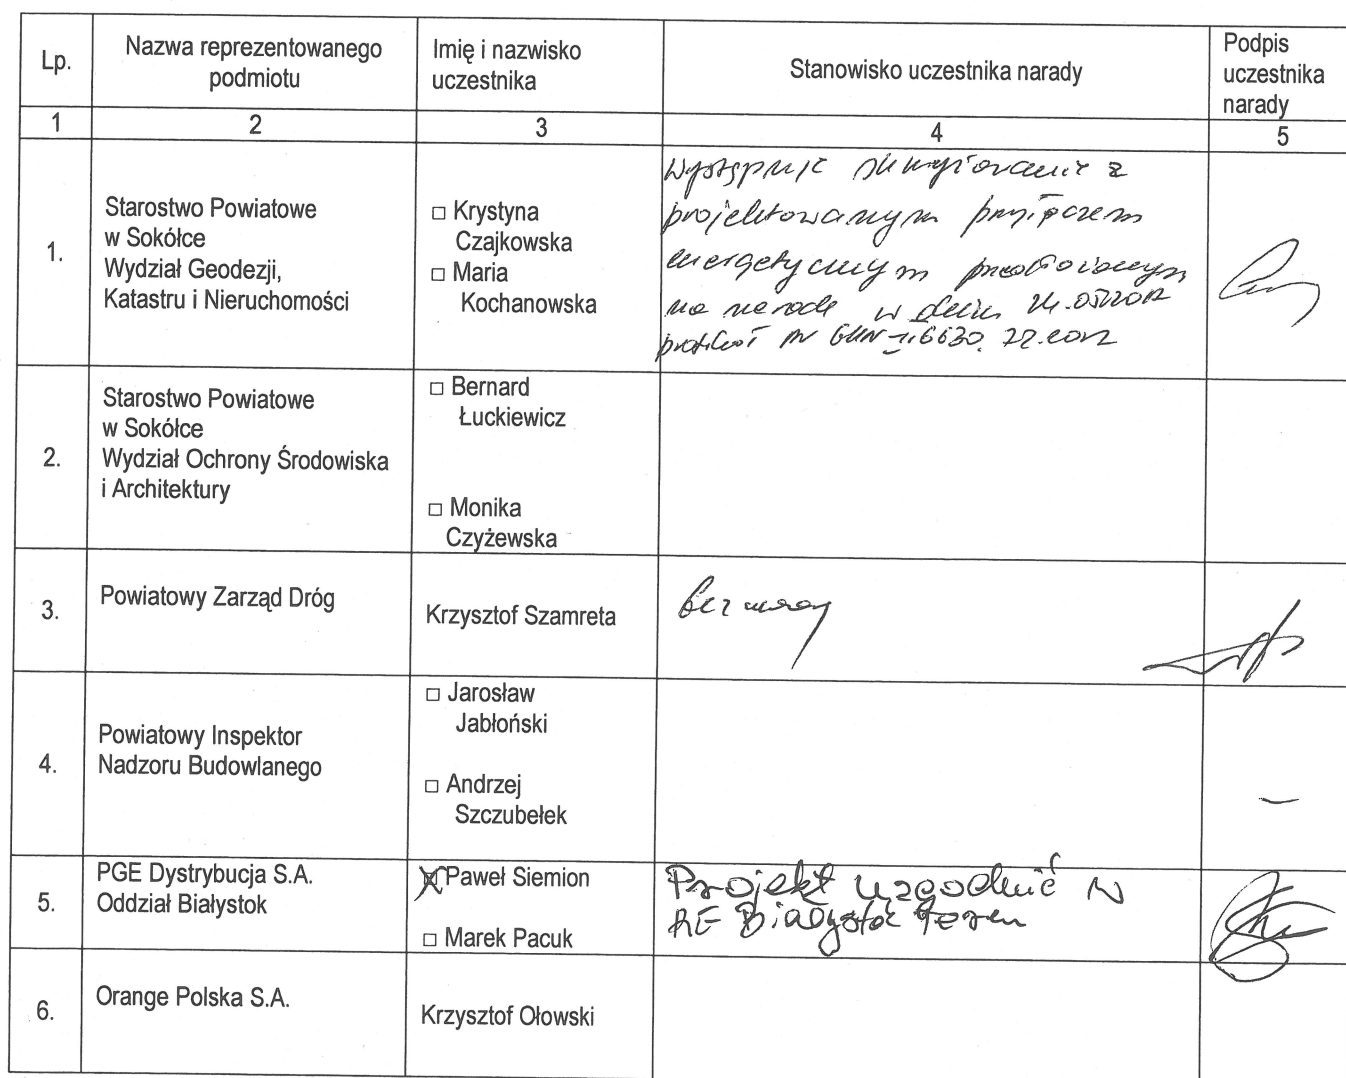 Lp.
Nazwa reprezentowanego
podmiotu
Imię i nazwisko
uczestnika
Stanowisko uczestnika narady
Podpis
uczestnika
narady
1
2
3
4
5
1.
Starostwo Powiatowe
w Sokółce
Wydział Geodezji,
Katastru i Nieruchomości
□ Krystyna
Czajkowska
□ Maria
Kochanowska
Występuje skrzyżowanie z
projektowanym przyłączem
energetycznym
na narade w dniu
protokół nr GKN
2.
Starostwo Powiatowe
w Sokółce
Wydział Ochrony Środowiska
i Architektury
□ Bernard
Łuckiewicz
□ Monika
Czyżewska
3.
Powiatowy Zarząd Dróg
Krzysztof Szamreta
bez uwag
4.
Powiatowy Inspektor
Nadzoru Budowlanego
□ Jarosław
Jabłoński
□ Andrzej
Szczubełek
–
5.
PGE Dystrybucja S.A.
Oddział Białystok
☒ Paweł Siemion
□ Marek Pacuk
Projekt uzgodnić w
RE Białystok Teren
6.
Orange Polska S.A.
Krzysztof Ołowski